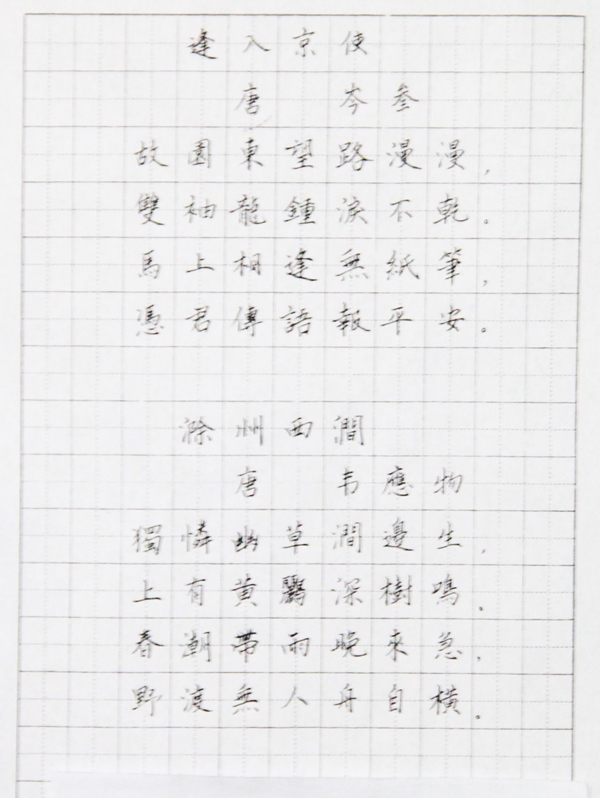 逢入京使
唐 岑參
故園東望路漫漫，
雙袖龍鍾淚不乾。
馬上相逢無紙筆，
憑君傳語報平安。
滁州西澗
唐 韦應物
獨憐幽草澗邊生，
上有黃鸝深樹鳴。
春潮帶雨晚來急，
野渡無人舟自橫。